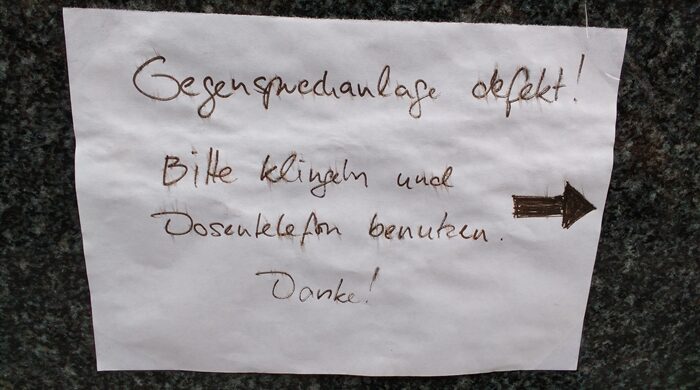 Gegensprechanlage defekt!
Bitte klingeln und
Dosentelefon benutzen.
Danke!